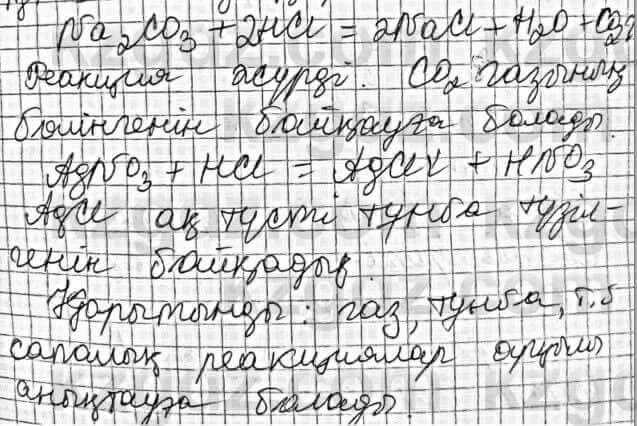 Na2CO3 + 2HCl = 2NaCl + H2O + CO2↑
Реакция жүрді. CO2 газының
бөлінгенін байқауға болады.
AgNO3 + HCl = AgCl↓ + HNO3
AgCl ақ түсті тұнба түзіл-
генін байқадық.
Қорытынды: газ, тұнба, т.б
сапалық реакциялар арқылы
анықтауға болады.